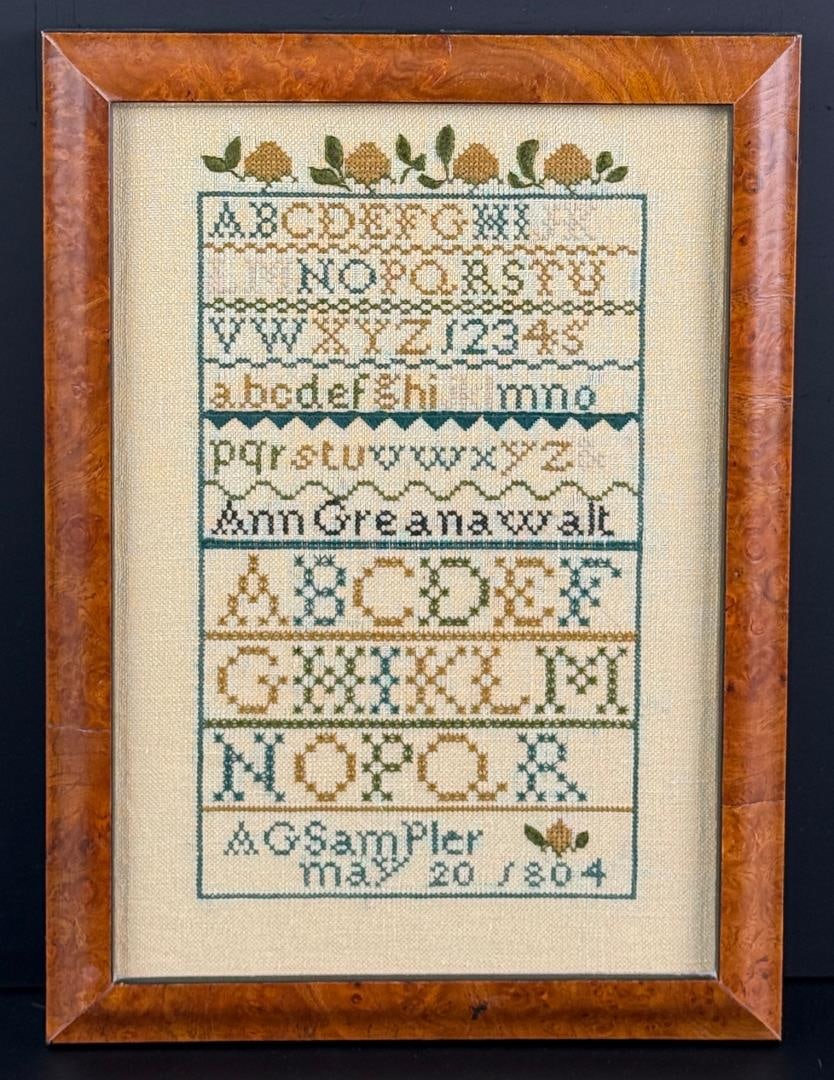 ABCDEFGHI JK
LMNOPQRSTU
VWXYZ 12345
abcdefghiklmno
pqrstuvwxyz&
Ann Greanawalt
ABCDEF
GHIKLM
NOPQR
AGSamPler
may 20 1804